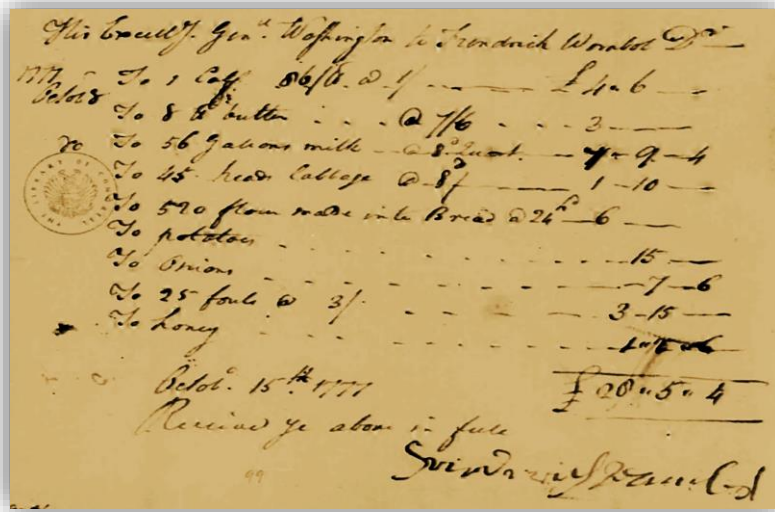 His Excelly. Genll. Washington to Frendrich Wombol Dr
1777 - To 1 Calf 86 lb @ 1/ £ 4 " 6 —
Octob 8 To 8 lb butter @ 7/6 3 —
To 56 Gallons milk @ 8d Quart. 7 - 9 - 4
To 45 heads Cabbage @ 8d 1 - 10 —
To 520 flour made into Bread @ 24 6 —
To potatoes 15 —
To Onions 7 - 6
To 25 fouls @ 3/ 3 - 15 —
To honey
Octobr. 15th 1777 £ 28 " 5 " 4
Receivd ye above in full
THE LIBRARY OF CONGRESS
99